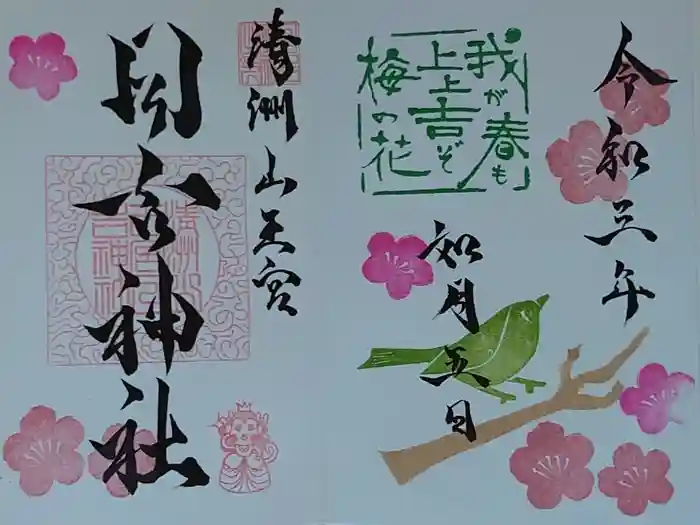 令和三年
我が春も
上上吉ぞ
梅の花
如月五日
清洲山王宮
日吉神社